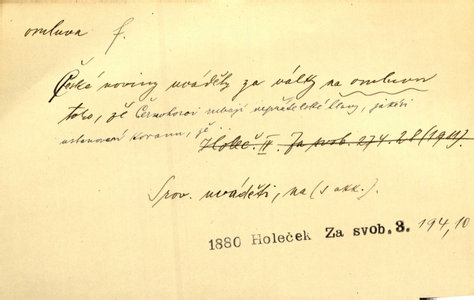 omluva f.
České noviny uváděly za války na omluvu
toho, že Černohorci rubají nepřátelské hlavy, jakési
ustanovení koranu, že
Holeč. IV. Za svob. 274. 28 (1911).
Srov. uváděti, na (s akk.).
1880 Holeček Za svob. 3. 194, 10